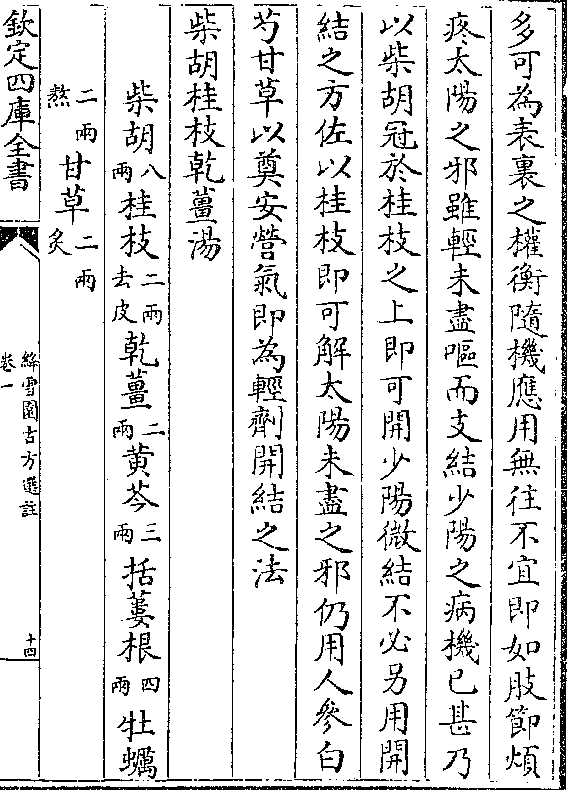 多可為表裏之權衡隨機應用無往不宜即如肢節煩
疼太陽之邪雖輕未盡嘔而支結少陽之病機已甚乃
以柴胡冠於桂枝之上即可開少陽微結不必另用開
結之方佐以桂枝即可解太陽未盡之邪仍用人參白
芍甘草以奠安營氣即為輕劑開結之法
柴胡桂枝乾薑湯
柴胡八兩桂枝二兩去皮乾薑二兩黄芩三兩括蔞根四兩牡蠣
二兩熬甘草二兩炙
欽定四庫全書
絳雪園古方選註
卷一
十四